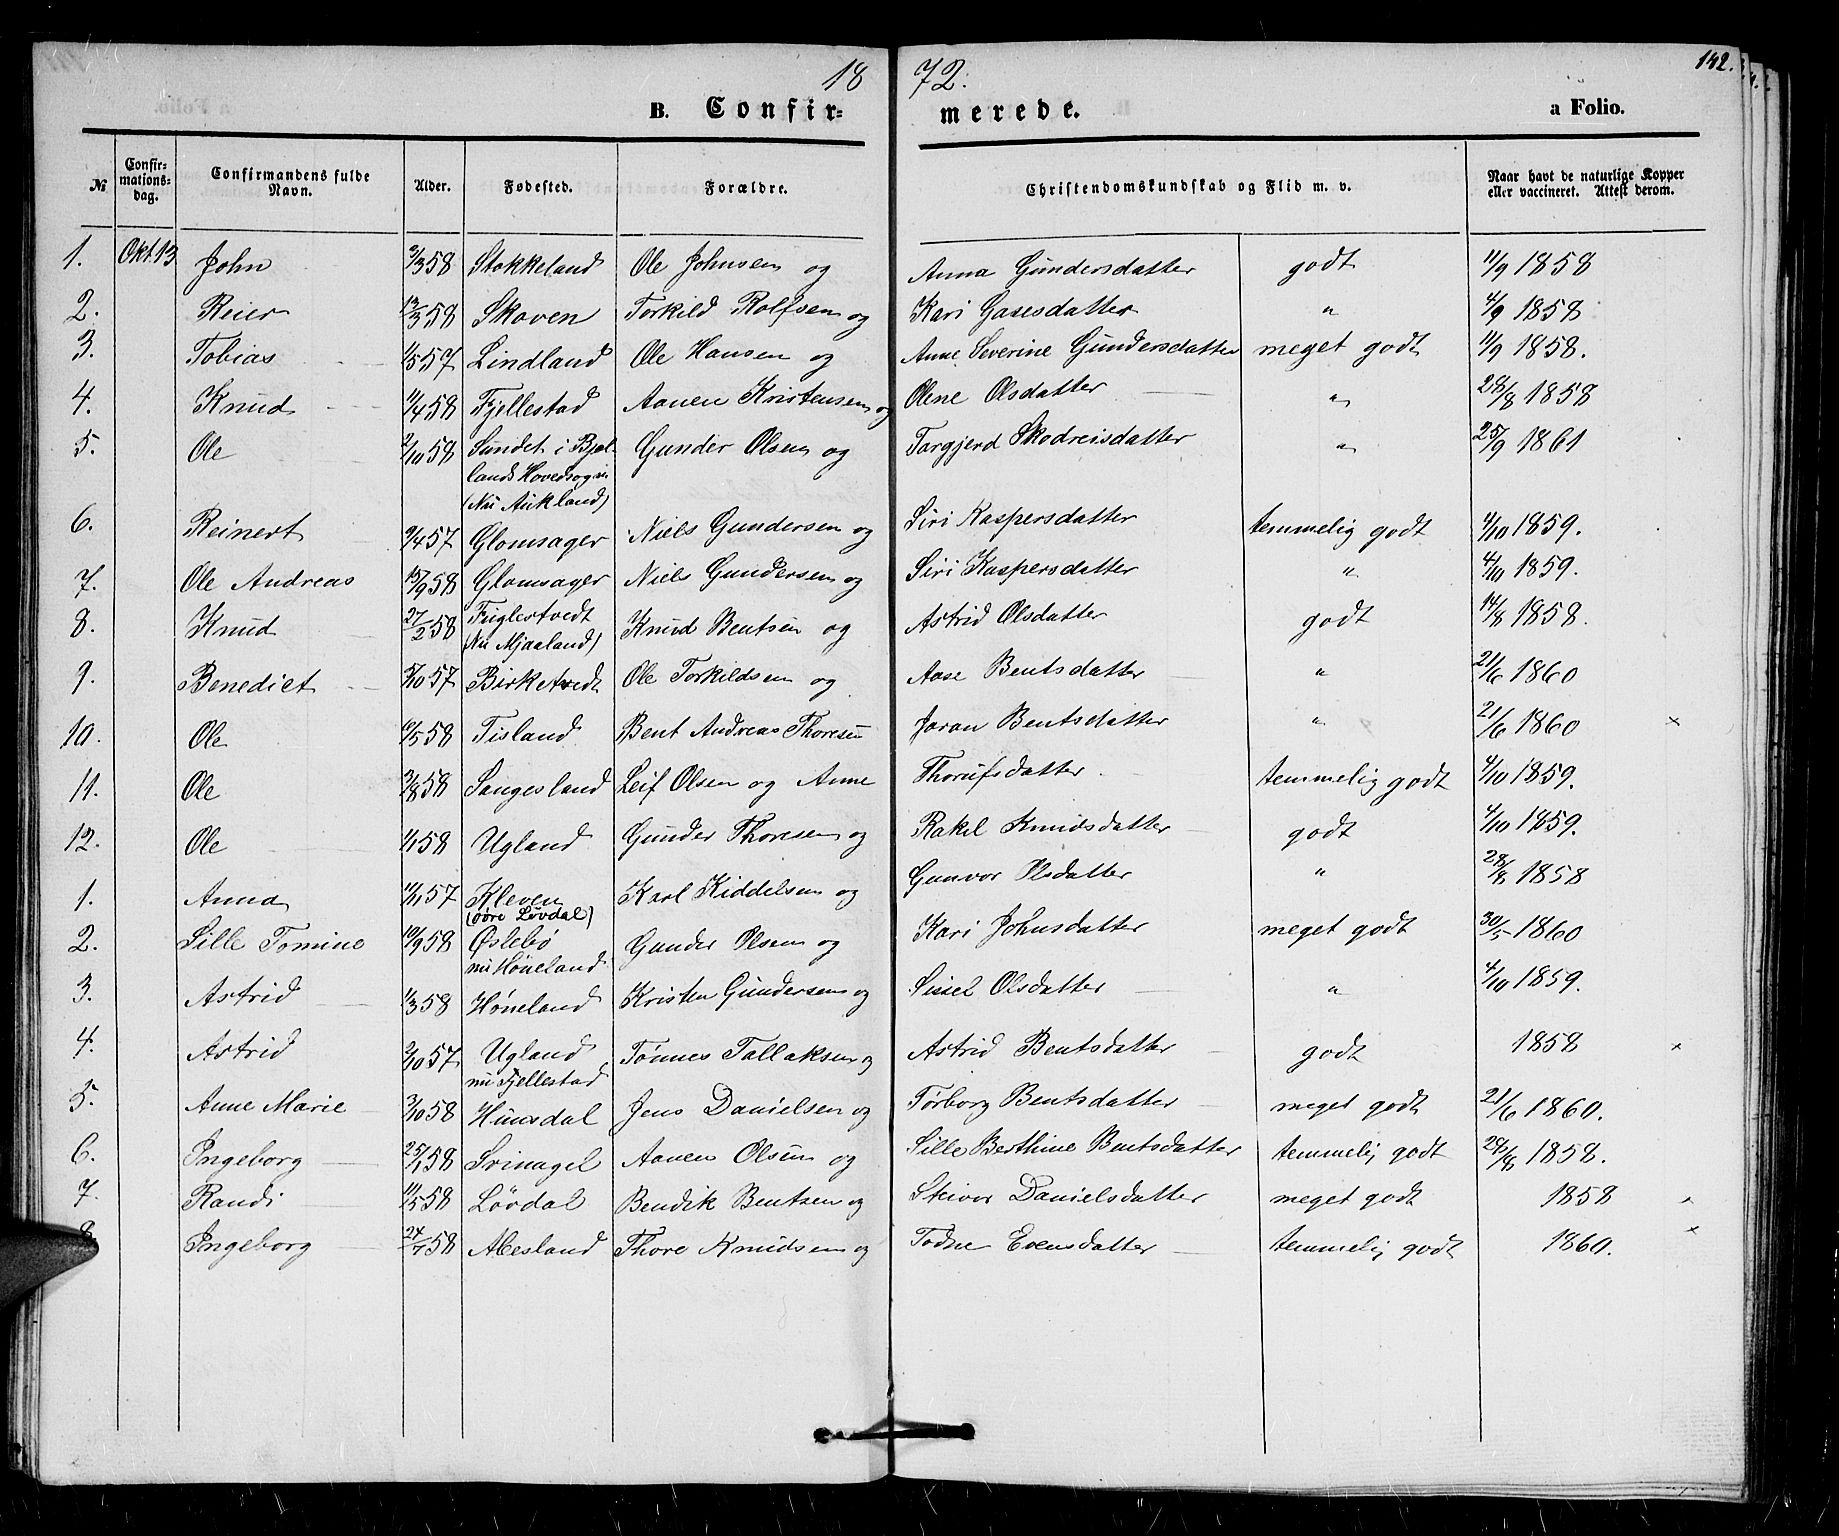 18 72. 142.
B. Confir- merede. a Folio.
№ Confir-mations-dag. Confirmandens fulde Navn. Alder. Fødested. Forældre. Christendomskundskab og Flid m. v. Naar havt de naturlige Kopper eller vaccineret. Attest derom.
1. Okt. 13 John 2/3 58 Stokkeland Ole Johnsen og Anna Gundersdatter godt 11/9 1858
2. Reier 13/3 58 Skoven Torkild Rolfsen og Kari Gasesdatter " 4/9 1858
3. Tobias 1/5 57 Lindland Ole Hansen og Anne Severine Gundersdatter meget godt 11/9 1858.
4. Knud 11/4 58 Fjellestad Aanen Kristensen og Olene Olsdatter " 28/8 1858
5. Ole 2/10 58 Sundet i Bjel- Gunder Olsen og Targjerd Skodreisdatter " 25/9 1861
lands Hovedsogn
(Nu Aukland)
6. Reinert 9/4 57 Glomsager Niels Gundersen og Siri Kaspersdatter temmelig godt 4/10 1859.
7. Ole Andreas 15/9 58 Glomsager Niels Gundersen og Siri Kaspersdatter " 4/10 1859.
8. Knud 27/2 58 Fuglestvedt Knud Bentsen og Astrid Olsdatter godt 14/8 1858.
(Nu Mjaaland)
9. Benedict 5/10 57 Birketvedt Ole Torkildsen og Aase Bentsdatter " 21/6 1860
10. Ole 10/5 58 Tisland Bent Andreas Thoresen Joran Bentsdatter " 21/6 1860 x
11. Ole 3/8 58 Sangesland Leif Olsen og Anne Thorufsdatter temmelig godt 4/10 1859.
12. Ole 1/1 58 Ugland Gunder Thoresen og Rakel Knudsdatter godt 4/10 1859.
1. Anna 11/11 57 Kleven Karl Kiddelsen og Gunvor Olsdatter " 28/8 1858
(øvre Løvdal)
2. Sille Tomine 10/9 58 Øslebø Gunder Olsen og Kari Johnsdatter meget godt 30/5 1860
nu Høneland
3. Astrid 1/3 58 Høneland Kristen Gundersen og Sissel Olsdatter " 4/10 1859.
4. Astrid 2/10 57 Ugland Tønnes Tallaksen og Astrid Bentsdatter godt 1858 x
nu Fjellestad
5. Anne Marie 3/10 58 Hunsdal Jens Danielsen og Torborg Bentsdatter meget godt 21/6 1860.
6. Ingeborg 25/1 58 Svinagel Aanen Olsen og Sille Berthine Bentsdatter temmelig godt 28/8 1858.
7. Randi 11/5 58 Løvdal Bendik Bentsen og Skivor Danielsdatter meget godt 1858 x
8. Ingeborg 24/7 58 Abesland Thore Knudsen og Todne Evensdatter temmelig godt 1860. x